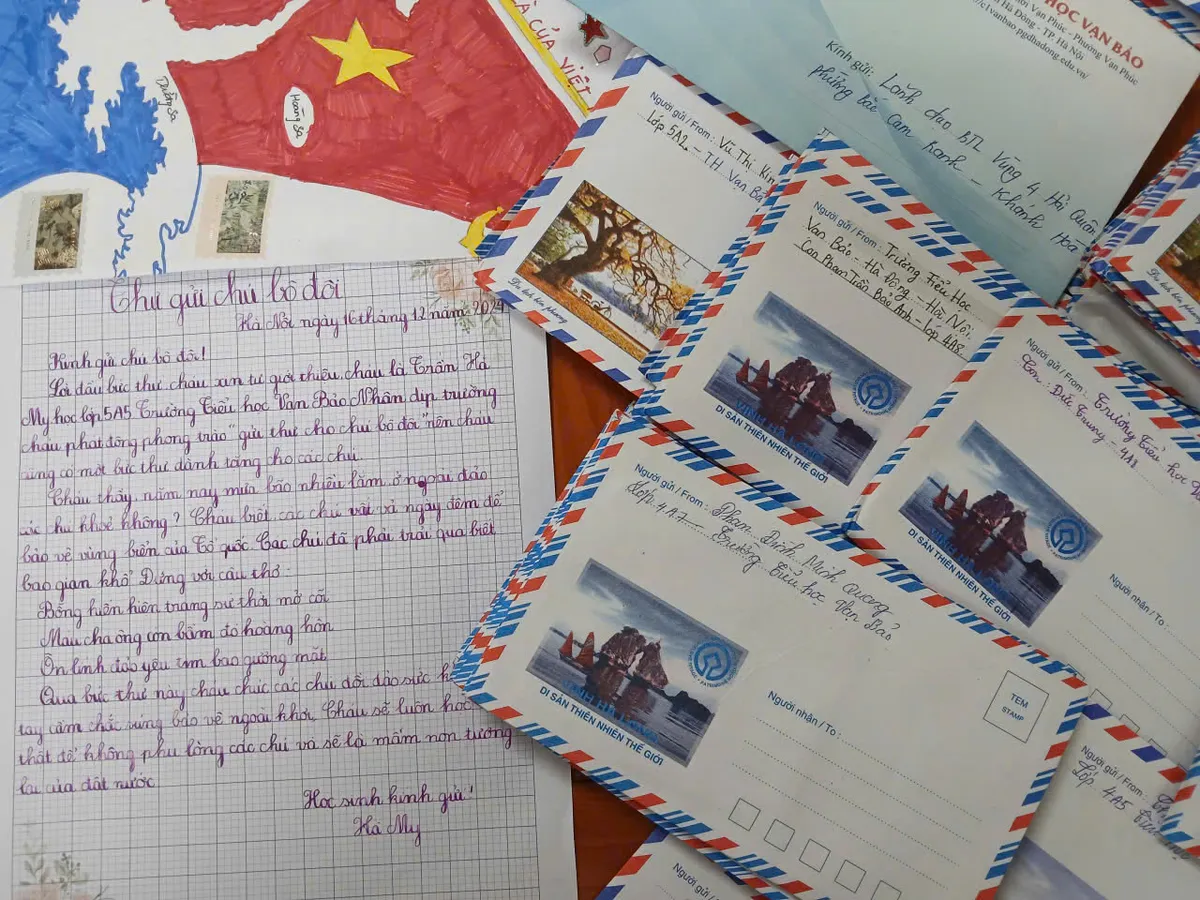 À CỦA VIỆT
Trường Sa
Hoàng Sa
Thư gửi chú bộ đội
Hà Nội ngày 16 tháng 12 năm 2024
Kính gửi chú bộ đội!
Lời đầu bức thư cháu xin tự giới thiệu, cháu là Trần Hà
My học lớp 5A5 Trường Tiểu học Vạn Bảo. Nhân dịp trường
cháu phát động phong trào "gửi thư cho chú bộ đội" nên cháu
cũng có một bức thư dành tặng cho các chú.
Cháu thấy năm nay mưa bão nhiều lắm, ở ngoài đảo
các chú khoẻ không? Cháu biết các chú vất vả ngày đêm để
bảo vệ vùng biển của Tổ quốc. Các chú đã phải trải qua biết
bao gian khổ. Đúng với câu thơ:
Bỗng hiện hiên trang sử thời mở cõi
Máu cha ông còn bầm đỏ hoàng hôn
Ơn lính đảo yêu tim bao gương mặt
Qua bức thư này cháu chúc các chú dồi dào sức
tay cầm chắc súng bảo vệ ngoài khơi. Cháu sẽ luôn học
thật để không phụ lòng các chú và sẽ là mầm non tương
lai của đất nước
Học sinh kính gửi!
Hà My
HỌC VẠN BẢO
Vạn Phúc - Phường Vạn Phúc
Hà Đông - TP. Hà Nội
c1vanbao.pgdhadong.edu.vn/
Kính gửi: Lãnh đạo BTL Vùng 4 Hải Quân
phường bắc Cam Ranh - Khánh Hoà
Người gửi / From: Vũ Thị Kim
Lớp 5A2 - TH Vạn Bả
Người gửi / From: Trường Tiểu Học
Vạn Bảo - Hà Đông - Hà Nội.
Con Phan Trần Bảo Anh - lớp 4A8
VỊNH HẠ LONG
DI SẢN THIÊN NHIÊN THẾ GIỚI
Người gửi / From: Trường Tiểu học
Con: Đức Trung - 4A1
VỊNH HẠ LONG
DI SẢN THIÊN NHIÊN THẾ GIỚI
Người nhận / To:
Người gửi / From: Phạm Đình Minh Quang
Lớp 4A7 - Trường Tiểu học Vạn Bảo
VỊNH HẠ LONG
DI SẢN THIÊN NHIÊN THẾ GIỚI
Người nhận / To:
TEM
STAMP
Người gửi / From:
Lớp 4A5
Người gửi / From: